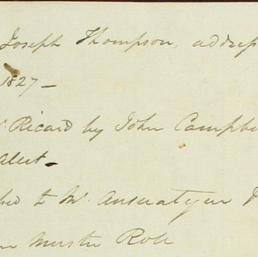 Joseph Thompson, address
1827-
Ricard by John Campbe
alect-
to Mr. Auseratyen
Muster Role